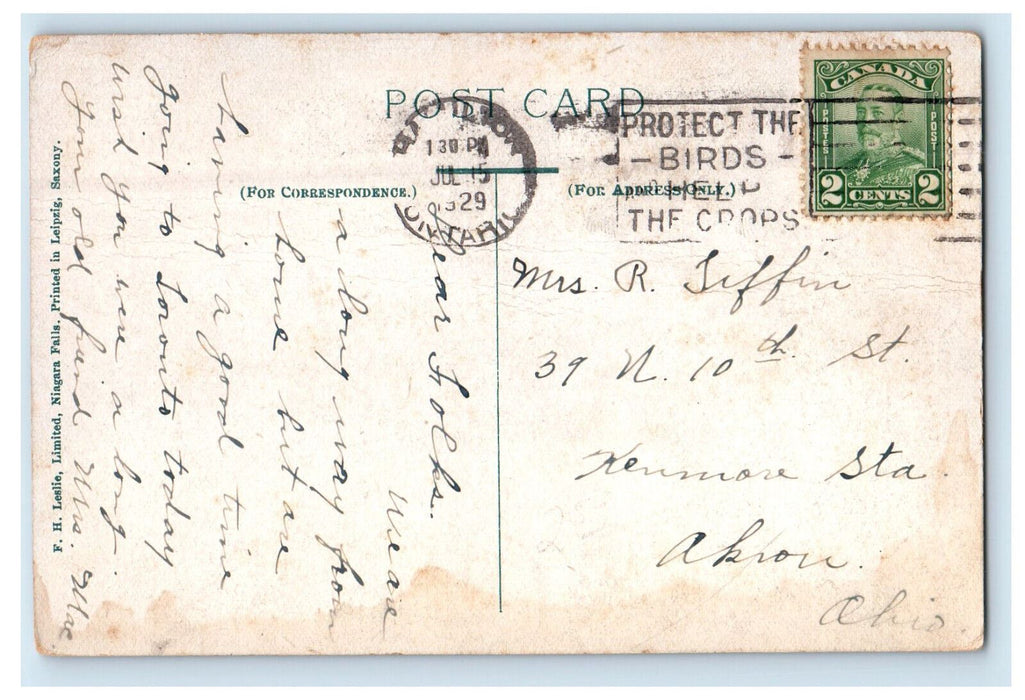 POST CARD
(FOR CORRESPONDENCE.)
(FOR ADDRESS ONLY.)
1 30 PM
JUL 15
1929
ONTARIO
PROTECT THE
- BIRDS -
HELP
THE CROPS
CANADA
POSTES
POST
2 CENTS 2
Dear Folks.
We are
a long way from
home but are
having a good time
going to Toronto today
wish you were a long.
Your old friend Mrs.
Mrs. R. Tiffin
39 N. 10th St.
Kenmore Sta.
Akron.
Ohio.
F. H. Leslie, Limited, Niagara Falls. Printed in Leipzig, Saxony.